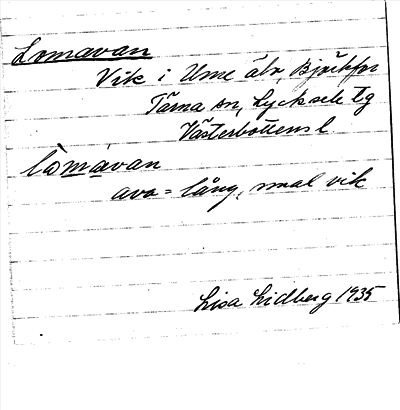 Lomavan
Vik i Ume älv, Björkfors
Tärna sn, Lycksele lg
Västerbottens l
lòmavan
ava = lång, smal vik
Lisa Lidberg 1935